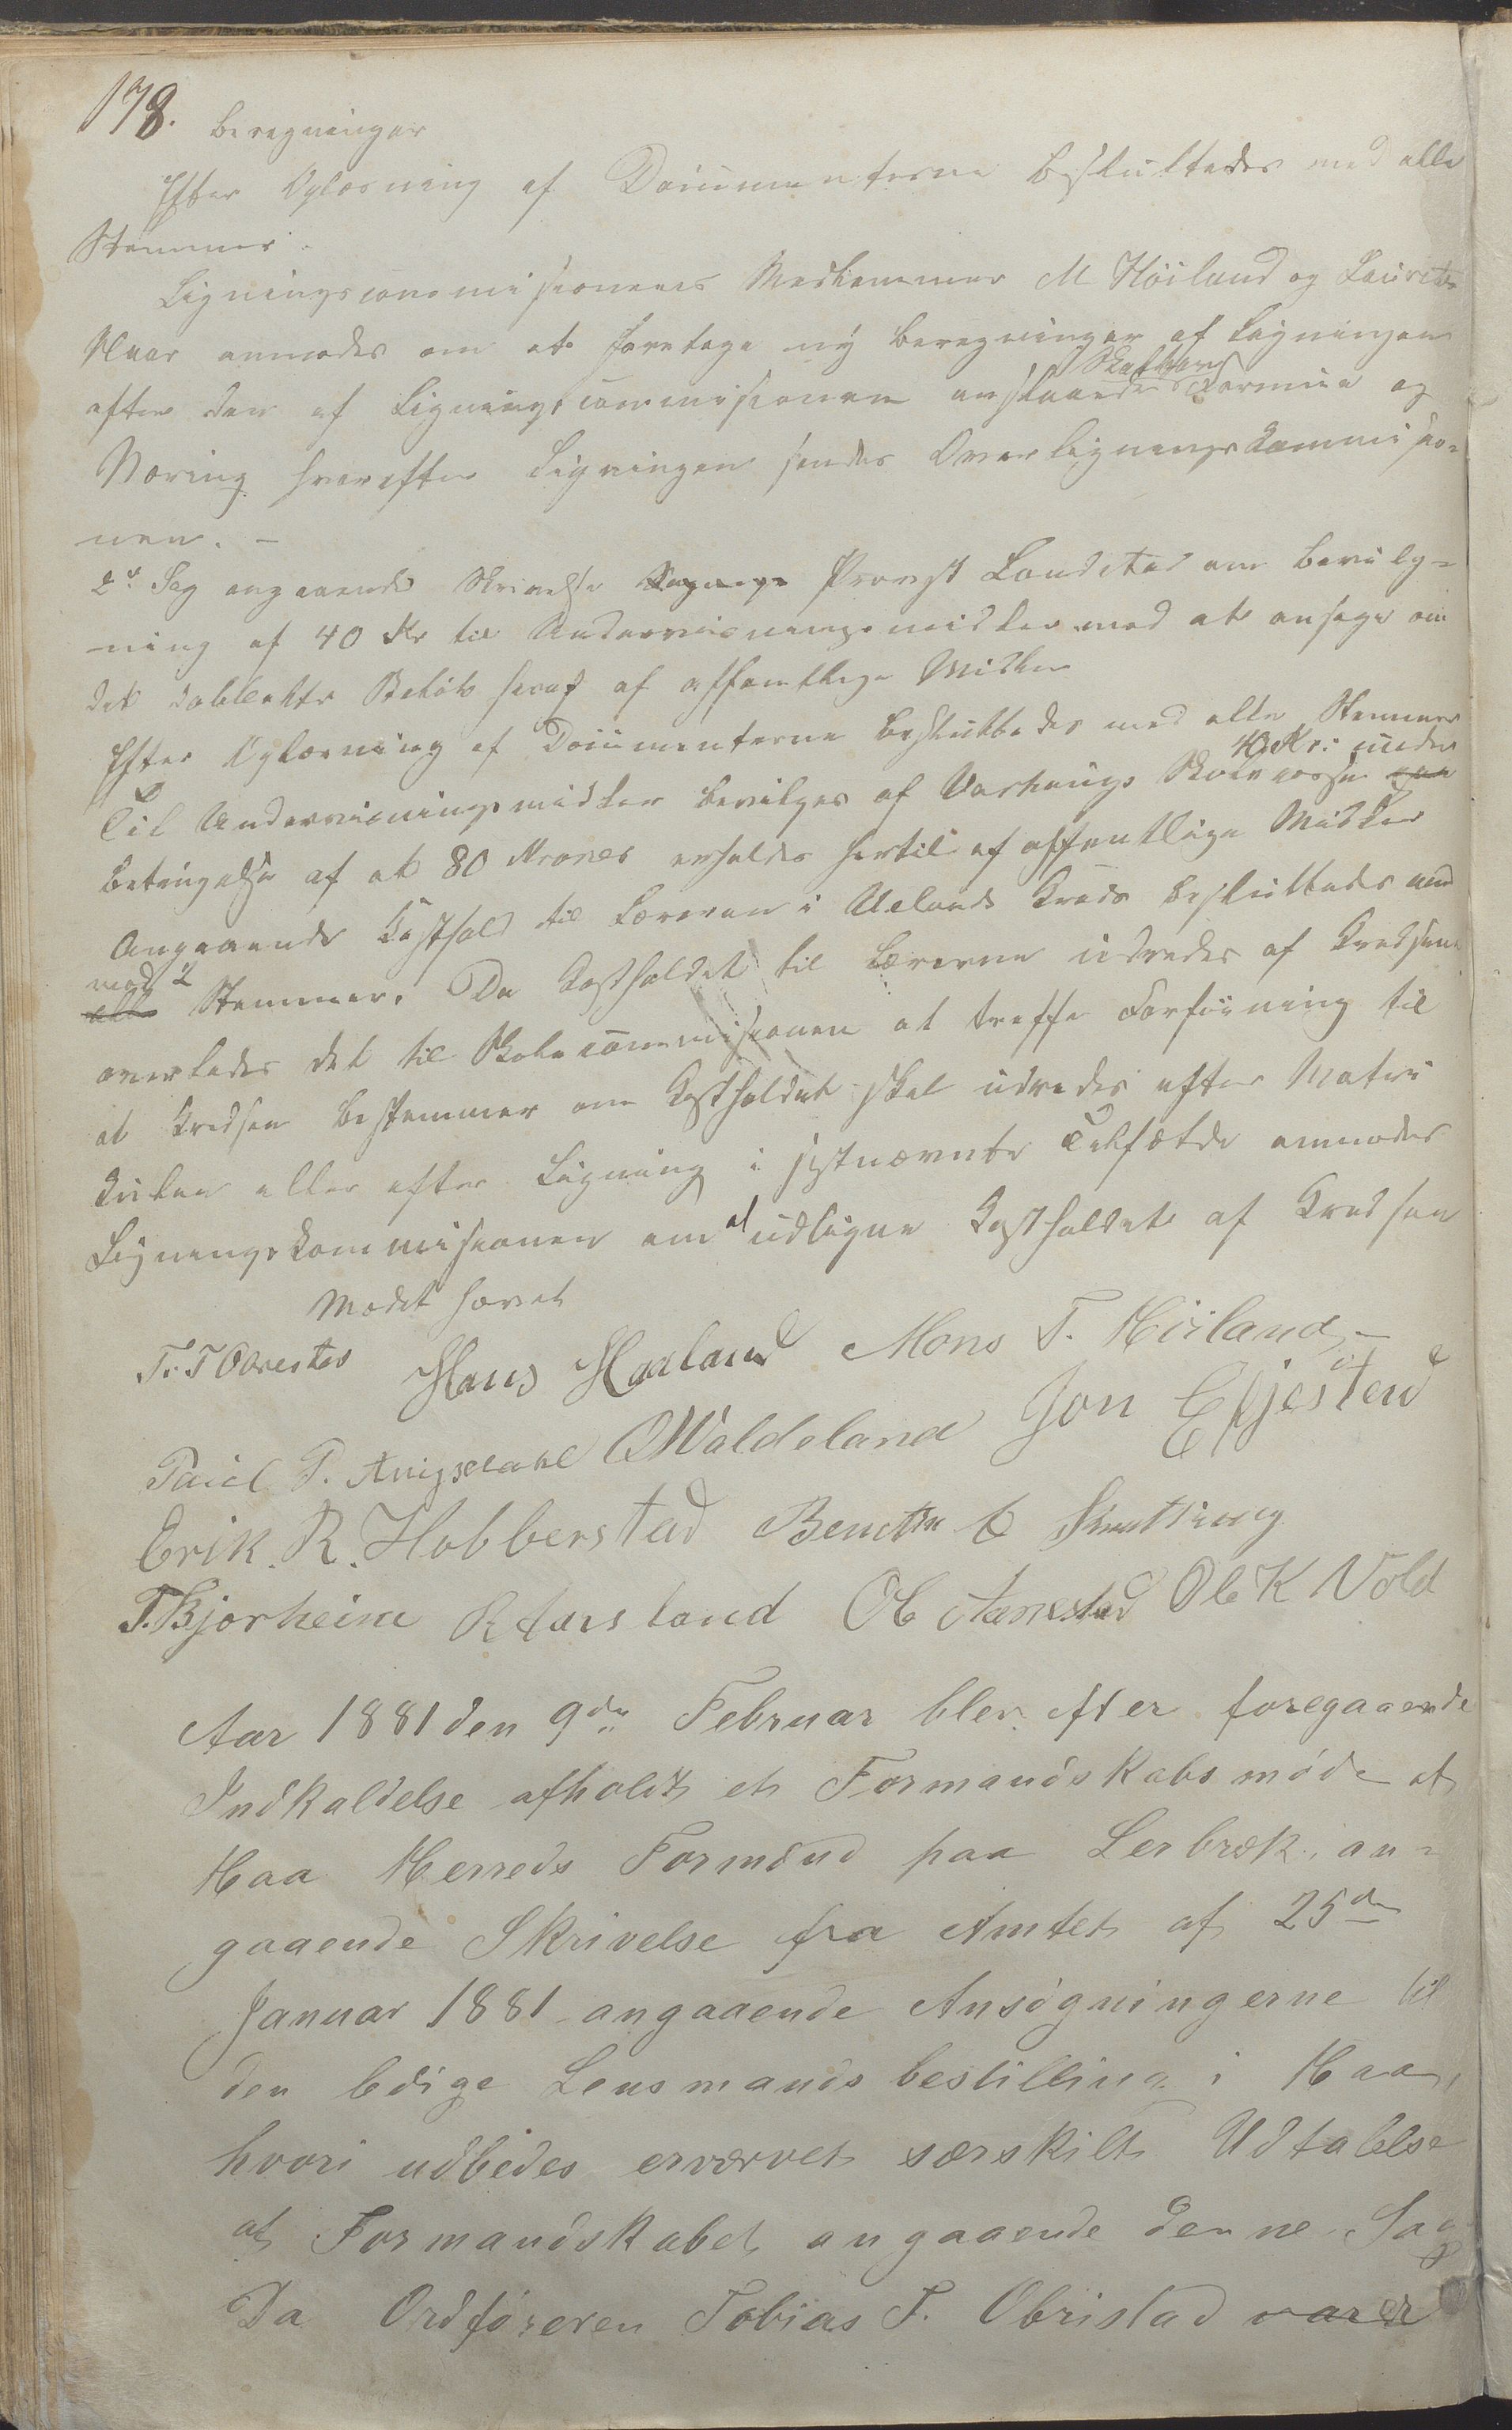 178. beregninger
Efter Oplæsning af Documenterne besluttedes med alle
Stemmer.
Ligningscommisionens Medlemmer M Höiland og Laurits
Njaar anmodes om at foretage ny beregninger af Ligningen
efter den af Ligningscommisionen anslaaede Skatbar Formue og
Næring hvorefter Ligningen sendes Overligningskommisio-
nen. –
2. Sag angaaende Skrivelse Provst Landstad om bevilg-
ning af 40 Kr til Undervisningsmidler mod at ansøge om
det dobbelte Beløb heraf af offentlige Midler
Efter Oplæsning af Documenterne besluttedes med alle Stemmer
Til Undervisningsmidler bevilges af Varhaugs Skolecasse 40 Kr: under
betingelse af at 80 Kroner erholdes hertil af offentlige Midler
Angaaende Kosthold til Læreren i Uelands Kreds besluttedes med
mod 2 Stemmer. Da Kostholdet til Lærerne udredes af Kredsene
overlades det til Skolecommisionen at treffe Forføining til
at Kredsen bestemmer om Kostholdet skal udredes efter Matri
kulen eller efter Ligning i sistnævnte Tilfælde anmodes
Ligningskommisionen om at udligne Kostholdet af Kredsen
Mødet hævet
T. T Obrestad Hans Haaland Mons T. Höiland –
Paul P. OWaldeland Jon Efjestad
Erik. R. Hobberstad
T. Bjorheim R Aarsland Ol Aanestad Ole K Vold
Aar 1881 den 9de Februar blev efter foregaaende
Indkaldelse afholdt et Formandskabsmøde af
Haa Herreds Formænd paa Lerbræk, an-
gaaende Skrivelse fra Amtet af 25de
Januar 1881 angaaende Ansøgningerne til
den ledige Lensmandsbestilling i Haa,
hvori udbedes erværvet særskilt Udtalelse
af Formandskabet angaaende denne Sag
Da Ordføreren Tobias T. Obristad var er